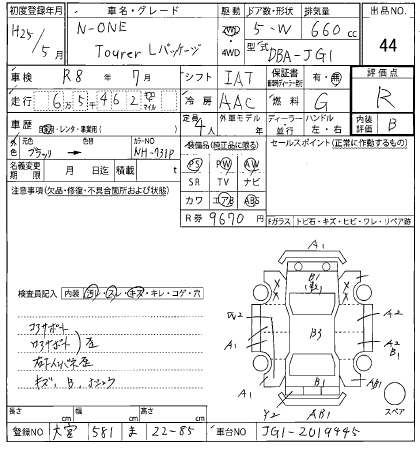 初度登録年月 車名・グレード 駆動 ドア数・形状 排気量 出品NO.
H25/5月 N-ONE 2WD 5-W 660cc 44
Tourer Lパッケージ 4WD 型式 DBA-JG1
車検 R8年7月 シフト IAT 保証書 有・無 評価点
走行 6万5千462 キロ マイル 冷房 AAC 燃料 G R
車歴 定員 4人 外車モデル 年 ディーラー・並行 ハンドル 左・右 内装評価 B
自家用・レンタ・事業用( )
外色 元色 色替 カラーNO 装備品(純正品に限る) セールスポイント(正常に作動するもの)
ブラック → NH-731P PS PW AW
名義変更期限 月 日迄 積載 t SR TV ナビ
注意事項(欠品・修復・不具合箇所および状態) カワ エアB ABS
R券 9670円 Fガラス トビ石・キズ・ヒビ・ワレ・リペア跡
A1
B1
検査員記入 内装 汚レ・スレ・キズ・キレ・コゲ・穴
A2
B3
A1 A1
コアサポート
左
A2 AB1
B1
キズ、B、
Y2 AB1 スペア
長さ cm 幅 cm 高さ cm
登録NO 大宮 581 ま 22-85 車台NO JG1-2019445